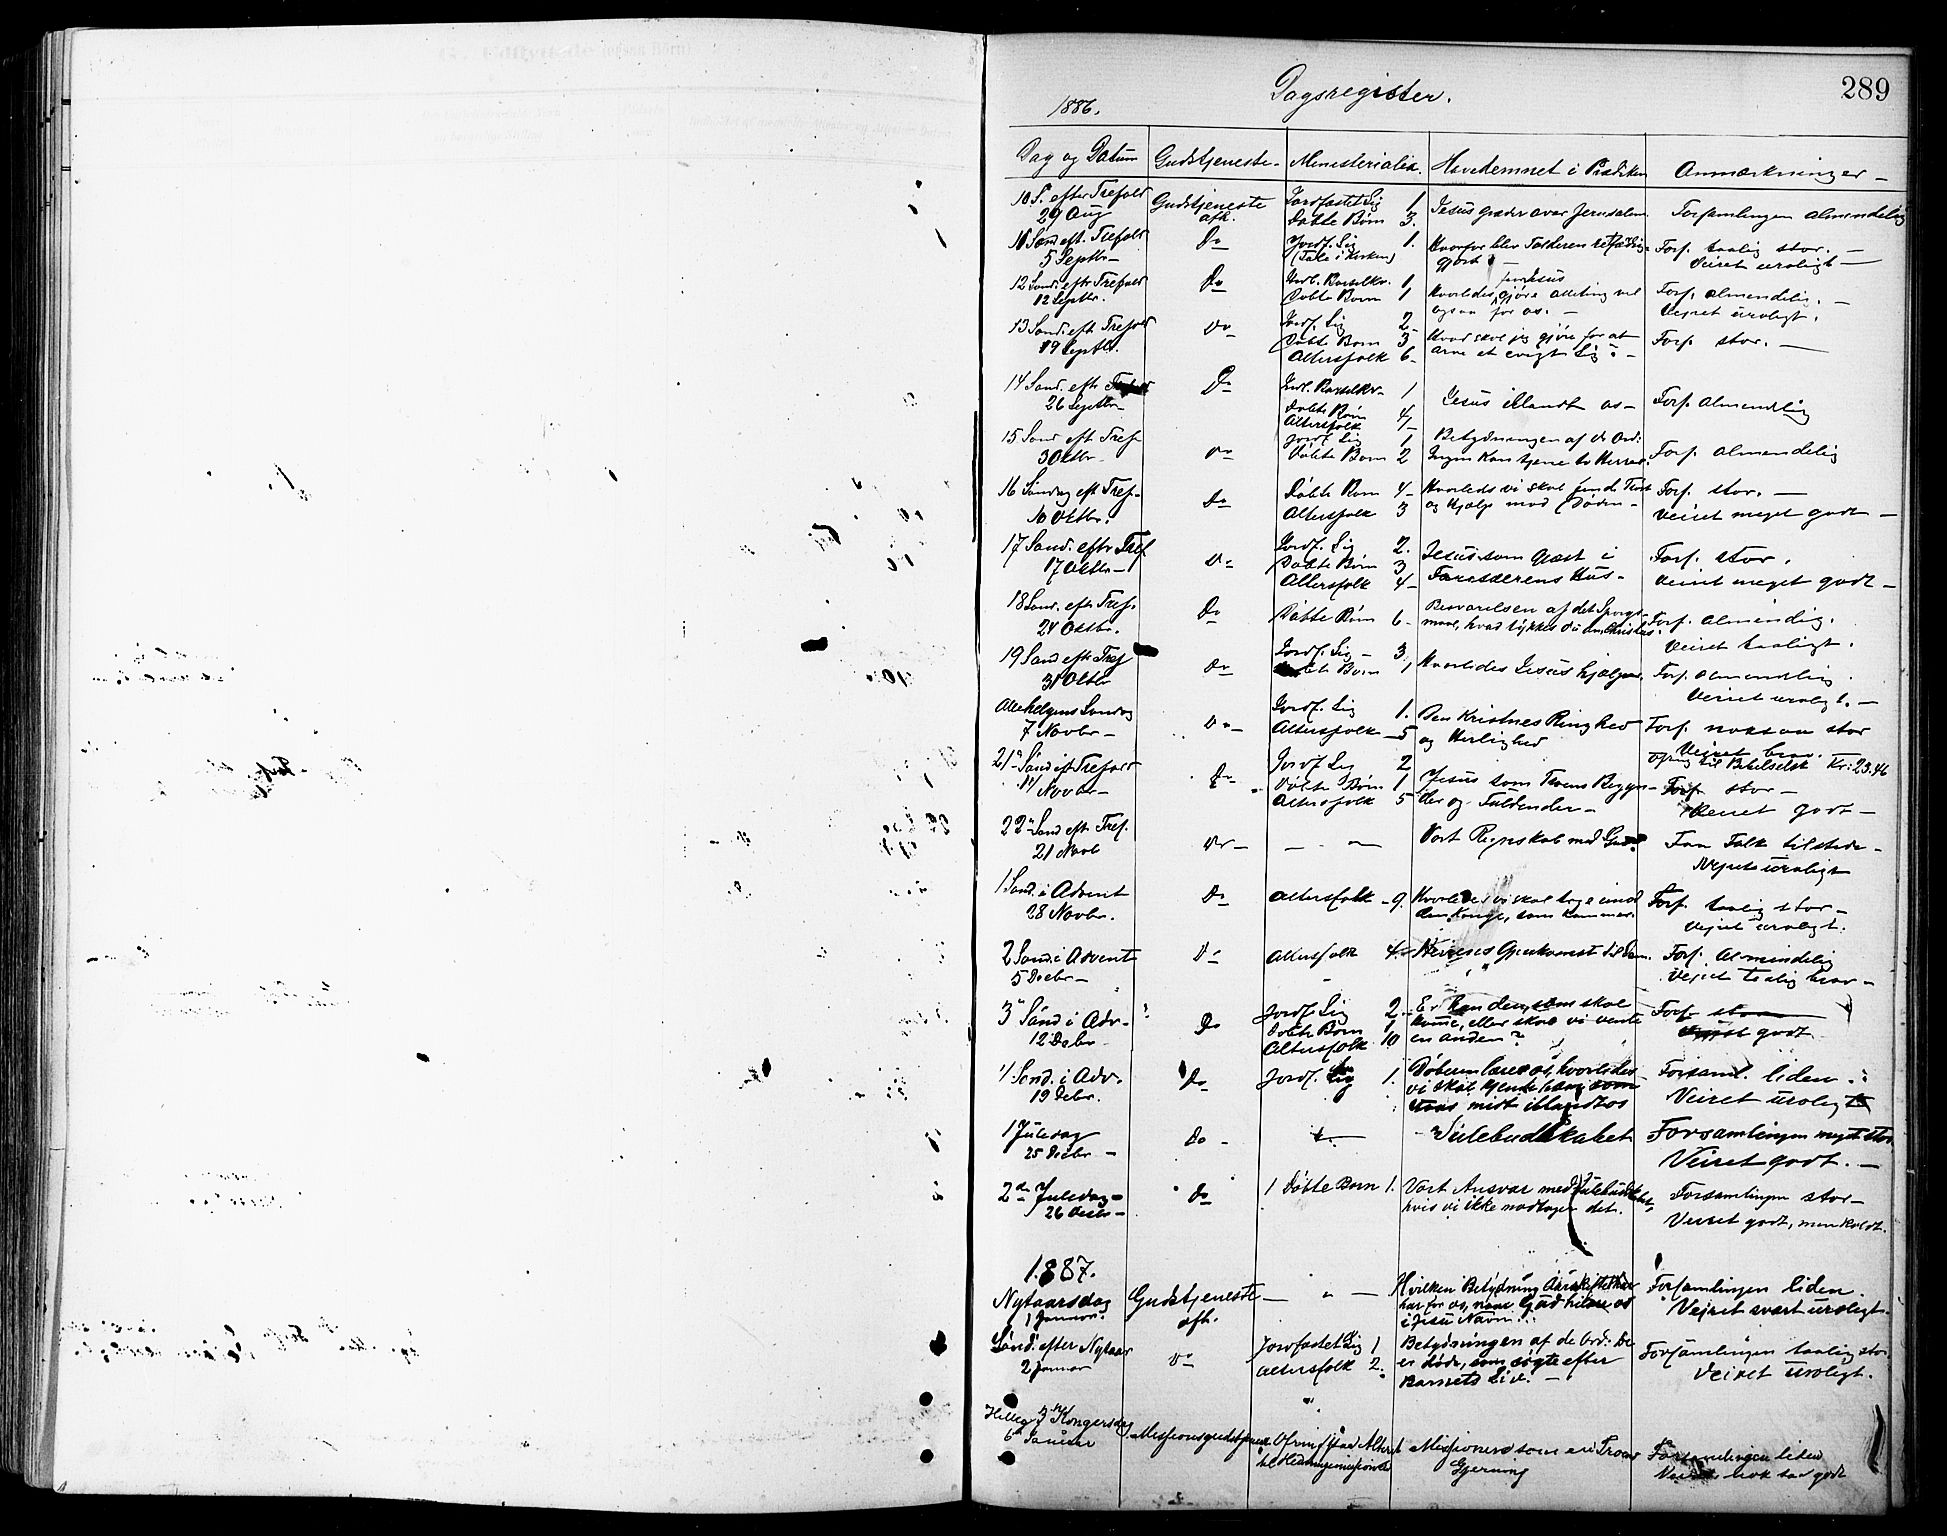 289
Dagsregister.
1886.
Dag og Datum Gudstjeneste. Ministerialia. Hovedemnet i Prædiken Anmærkninger
10 S. efter Trefold Gudstjeneste Jordfæstet Lig 1 Jesus græder over Jerusalem Forsamlingen almindelig
29 Aug afh. Døbte Børn 3.
Sønd eft. Trefold Do Jordf. Lig 1. Hvorfor blev Tolderen retfærdig- Forf. taalig stor.
5 Septbr (Tale i Kirken) gjort Veiret uroligt
12 Sønd. efter Trefold Do Indl. Barselkv. 1 Hvorledes Jesus gjøre alting vel Forf. almendelig.
12 Septbr. Døbte Børn 1 ogsaa for os. Veiret uroligt.
13 Sønd. eft Trefold Do Jordf. Lig 2 Hvad skal jeg gjøre for at Forf. stor.
19 Septbr. Døbte Børn 3 arve et evigt Liv
Altersfolk 6
14 Sønd. eft Trefold Do Indl. Barselkv 1 Jesus iblandt os Forf. Almendlig
26 Septbr Døbte Børn 4
Altersfolk
15 Sønd eft Tref Do Jordf. Lig 1 Betydningen af de Ord: Forf. Almendelig
3 Oktbr. Døbte Børn 2 Ingen kan tjene to Herrer.
16 Søndag eft Tref. Do Døbte Børn 4 Hvorleds vi skal finde Trøst Forf. stor.
10 Oktbr. Altersfolk 3 og Hjælp mod Døden Veiret meget godt
17 Sønd. eft Tref Do Jordf. Lig 2. Jesus som Gæst i Forf. stor.
17 Oktbr Døbte Børn 3 Farisæerens Hus Veiret meget godt
Altersfolk 4
18 Sønd. eft Tref. Do Døbte Børn 6 Besvarelsen af det Spørgs- Forf. Almindlig.
24 Oktbr. maal, hvad tykkes du om Christus. Veiret taaligt.
19 Sønd eft Tref Do Jordf. Lig 3 Hvorledes Jesus hjælper. Forf. Almendlig.
31 Oktbr Døbte Børn 1 Veiret uroligt.
Allehelgens Søndag Do Jordf. Lig 1. Den Kristnes Ringhed Forf. noksaa stor
7 Novbr Altersfolk 5 og Herlighed Veiret brav.
til Bibelselsk Kr: 23.46
21 Sønd eft Trefold Do Jordf Lig 2 Jesus som Troens Begyn- Forf stor
Novbr Døbte Børn 1 der og Fuldender Veiret godt
Altersfolk 5
22 Sønd eft Tref. Do Vort Regnskab med Gud Faa Folk tilstede
21 Novb Vejret uroligt
1 Sønd. i Advent Do Altersfolk 9. Hvorledes vi skal tage imod Forf. taalig stor
28 Novbr. den Konge, som kommer. Vejret uroligt.
2 Sønd. i Advent Do Altersfolk 4 Herrens Gjenkomst til Dom. Forf. Almindelig
5 Decbr Vejret taalig brav
3 Sønd i Adv Do Jordf. Lig 2 Er han den, som skal Forf stor
12 Decbr Døbte Børn 1 komme, eller skal vi vente Veiret godt
Altersfolk 10 en anden?
4 Sønd. i Adv. Do Jordf. Lig 1. Døberen lærer os, hvorledes Forsaml. liden.
19 Decbr. vi skal kjende ham, som Veiret uroligt
staar midt iblandt os
1 Juledag Do Julebudskabet Forsamlingen meget stor
25 Decbr Veiret godt.
2 Juledag Do 1 Døbte Børn 1. Vort Ansvar med Julebudskabet, Forsamlingen stor
26 Decbr hvis vi ikke modtager det. Veiret godt, men koldt.
1887.
Nytaarsdag Gudstjeneste Hvilken Betydning Aarskiftet har Forsamlingen liden.
1 Januar. afh. for os, naar Gud hilser os Vejret svært uroligt.
i Jesu Navn.
Sønd. efter Nytaar Do Jordfæstet Lig 1 Betydningen af de Ord: De Forsamlingen taalig stor
2 Januar Altersfolk 2. er døde, som søgte efter Veiret uroligt.
Barnets Liv.
Hellig 3 Kongersdag Missionsgudstjeneste Ofring paa Alteret Missionens som en Troens Forsamlingen liden
6 Januar til Hedningemissionen Gjerning Veiret nok saa godt